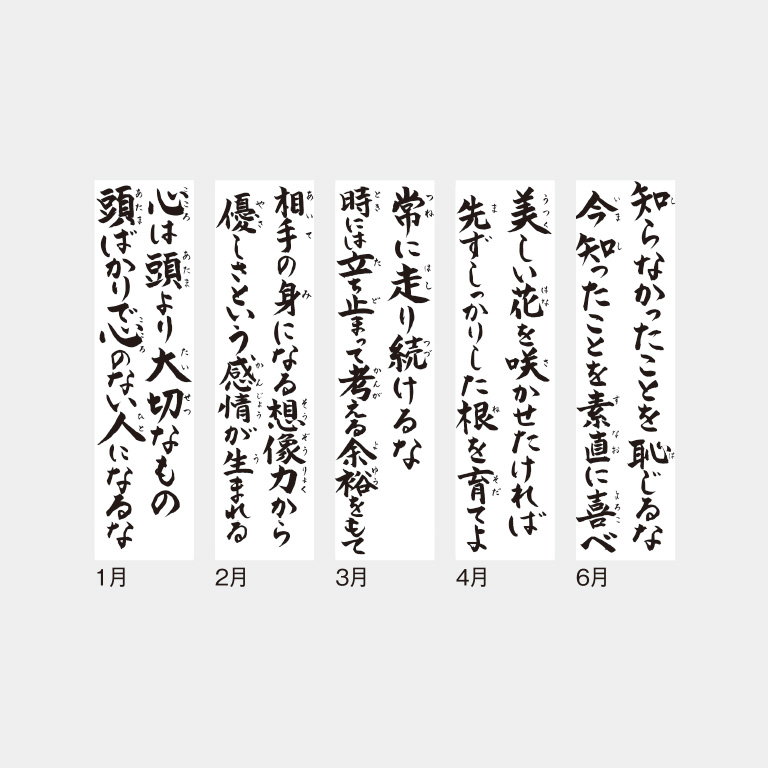 心は頭より大切なもの
頭ばかりで心のない人になるな
1月
相手の身になる想像力から
優しさという感情が生まれる
2月
常に走り続けるな
時には立ち止まって考える余裕をもて
3月
美しい花を咲かせたければ
先ずしっかりした根を育てよ
4月
知らなかったことを恥じるな
今知ったことを素直に喜べ
6月